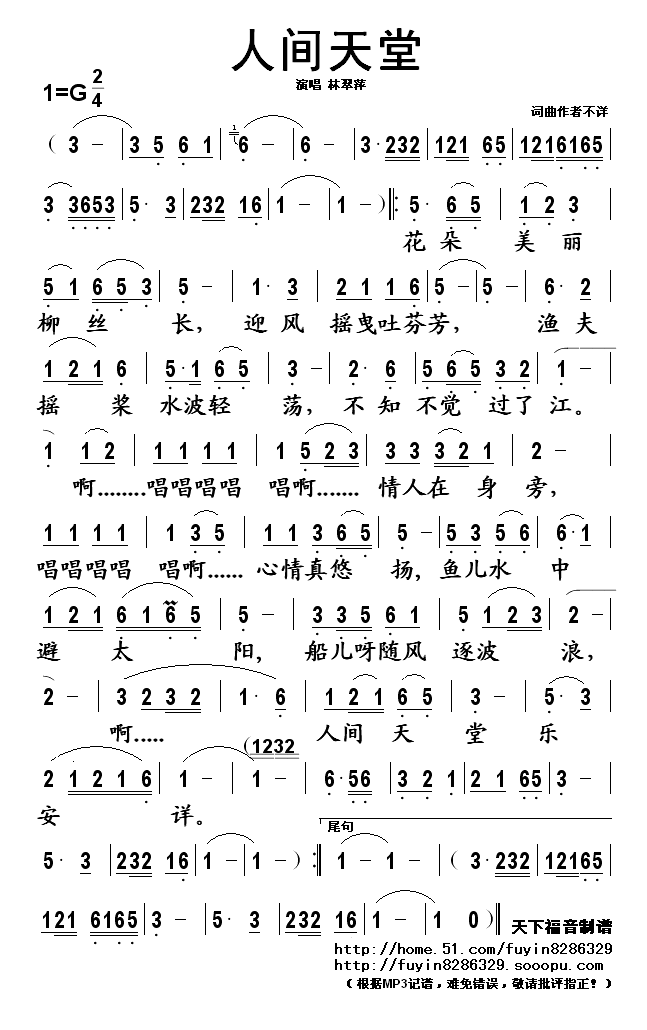 人间天堂
演唱 林翠萍
1=G 2/4
词曲作者不详
( 3 - | 3 5 6 1 | 1 6 - | 6 - | 3 · 232 | 121 65 | 1216165 |
3 3653 | 5 · 3 | 232 16 | 1 - | 1 - ) ‖: 5 · 6 5 | 1 2 3 |
花 朵 美 丽
5 1 6 5 3 | 5 - | 1 · 3 | 2 1 1 6 | 5 - | 5 - | 6 · 2 |
柳 丝 长, 迎 风 摇曳吐芬芳, 渔 夫
1 2 1 6 | 5 · 1 6 5 | 3 - | 2 · 6 | 5 6 5 3 2 | 1 - |
摇 桨 水波轻 荡, 不 知 不 觉 过了 江。
1 1 2 | 1 1 1 1 | 1 5 2 3 | 3 3 3 2 1 | 2 - |
啊........唱唱唱唱 唱啊....... 情人在 身 旁,
1 1 1 1 | 1 3 5 | 1 1 3 6 5 | 5 - | 5 3 5 6 | 6 · 1 |
唱唱唱唱 唱啊...... 心情真悠 扬, 鱼儿水 中
1 2 1 6 1 6 5 | 5 - | 3 3 5 6 1 | 5 1 2 3 | 2 - |
避 太 阳, 船儿呀随风 逐波 浪,
2 - | 3 2 3 2 | 1 · 6 | 1 2 1 6 5 | 3 - | 5 · 3 |
啊..... 人间 天 堂 乐
(1232
2 1 2 1 6 | 1 - | 1 - | 6 · 56 | 3 2 1 | 2 1 65 | 3 - |
安 详。
尾句
5 · 3 | 232 16 | 1 - | 1 - ) :‖ 1 - | 1 - | ( 3 · 232 | 12165 |
121 6165 | 3 - | 5 · 3 | 232 16 | 1 - | 1 0 ) ‖
天下福音制谱
http://home.51.com/fuyin8286329
http://fuyin8286329.sooopu.com
(根据MP3记谱，难免错误，敬请批评指正！)